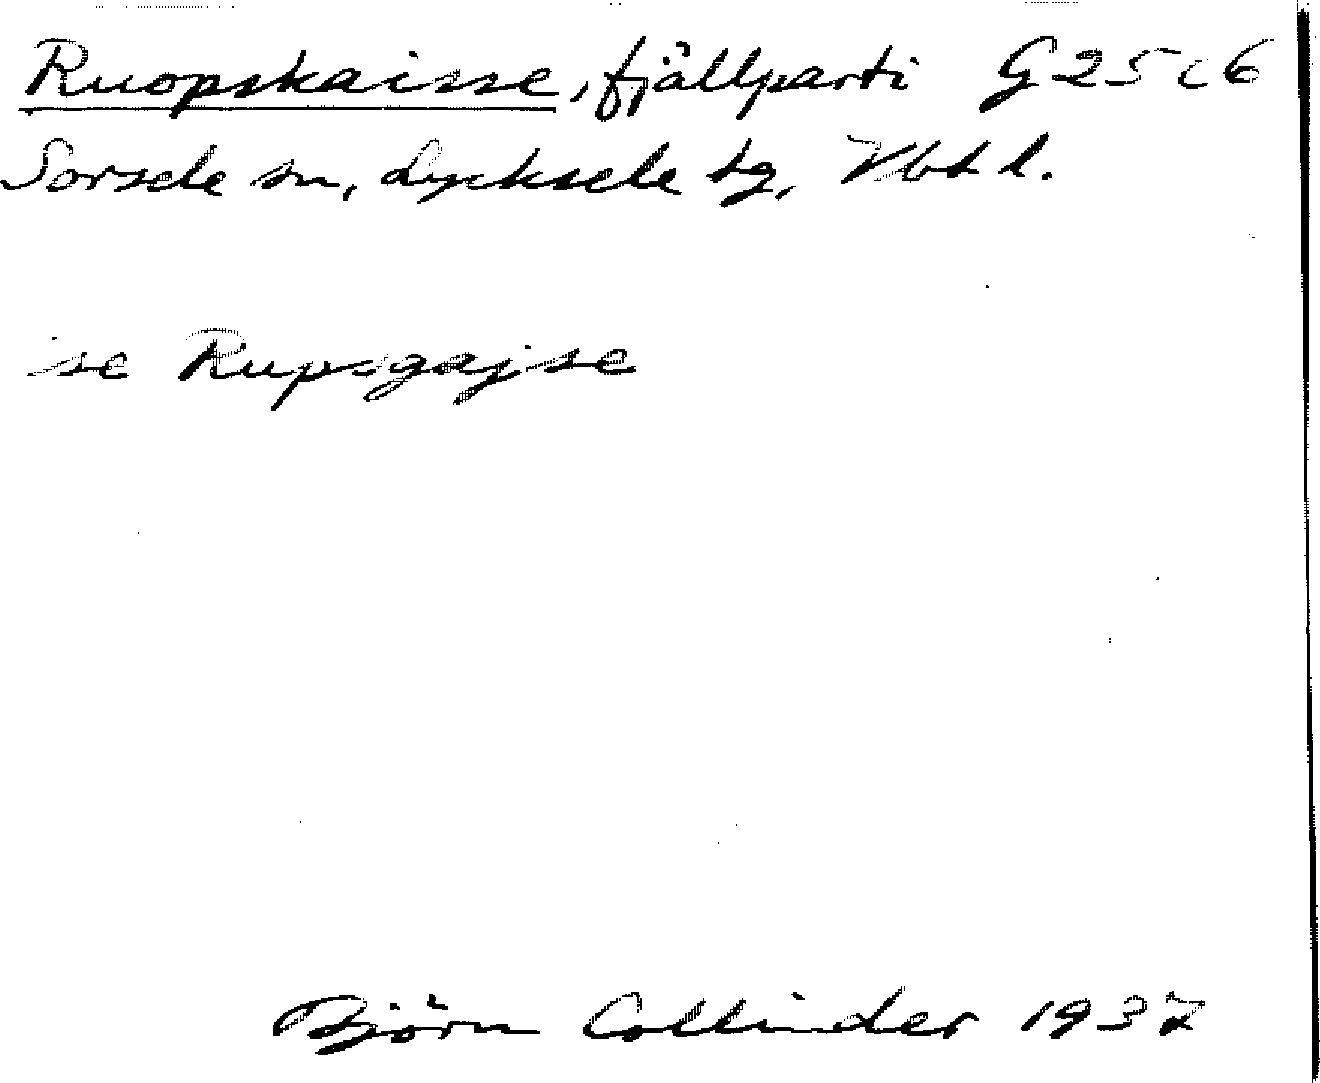 Ruopskaisse, fjällparti G 25 c 6
Sorsele sn, Lycksele tg, Vbt l.
se Rupsgajse
Björn Collinder 1937